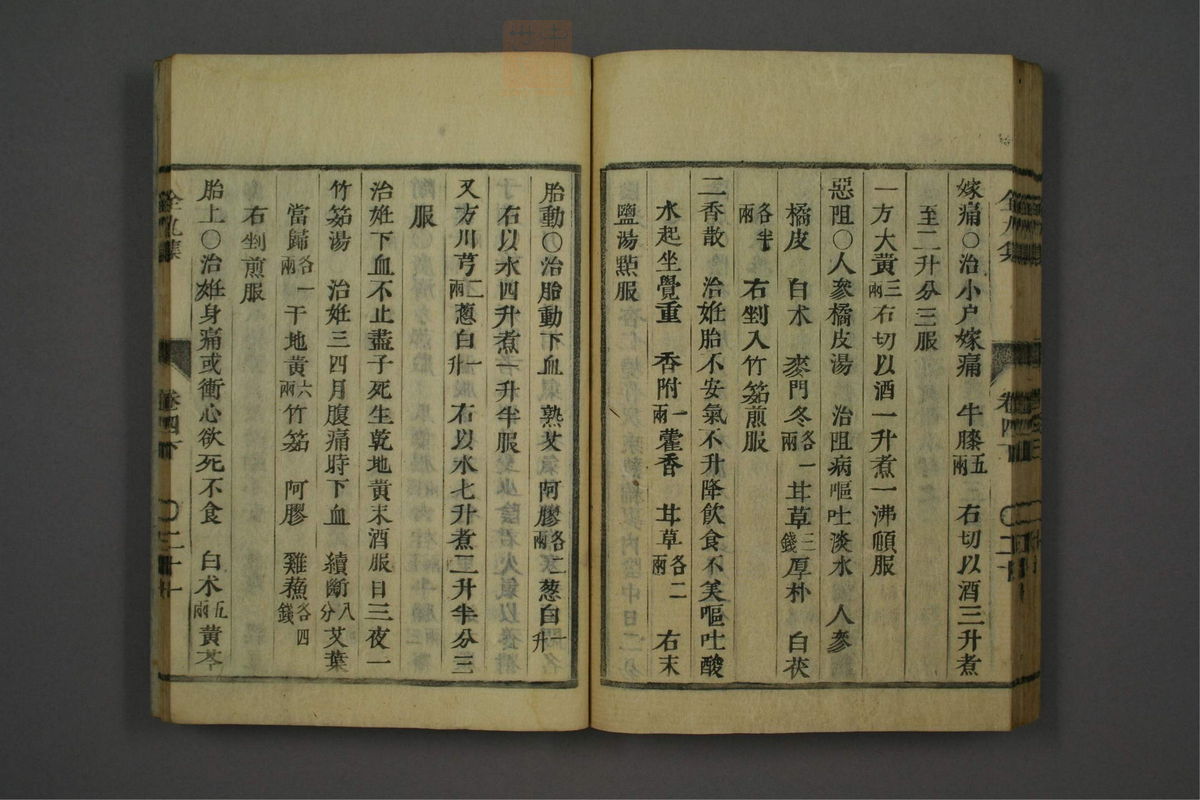 嫁痛○治小户嫁痛　牛膝五兩　右切以酒三升煮
至二升分三服
一方大黃三兩右切以酒一升煮一沸頓服
惡阻○人參橘皮湯　治阻病嘔吐淡水　人參
橘皮　白术　麥門冬各一兩甘草三錢厚朴　白茯
各半兩　右剉入竹筎煎服
二香散　治姙胎不安氣不升降飲食不美嘔吐酸
水起坐覺重　香附一兩藿香　甘草各二兩　右末
鹽湯點服
胎動○治胎動下血　熟艾　阿膠各二兩葱白一升
右以水四升煮一升半服
又方川芎二兩蔥白一升　右以水七升煮二升半分三
服
治姙下血不止盡子死生乾地黃末酒服日三夜一
竹筎湯　治姙三四月腹痛時下血　續斷八分艾葉
當歸各一兩干地黃六兩竹筎　阿膠　雞蘓各四錢
右剉煎服
胎上○治姙身痛或衝心欲死不食　白术五兩黃芩
卷四下
卷四下